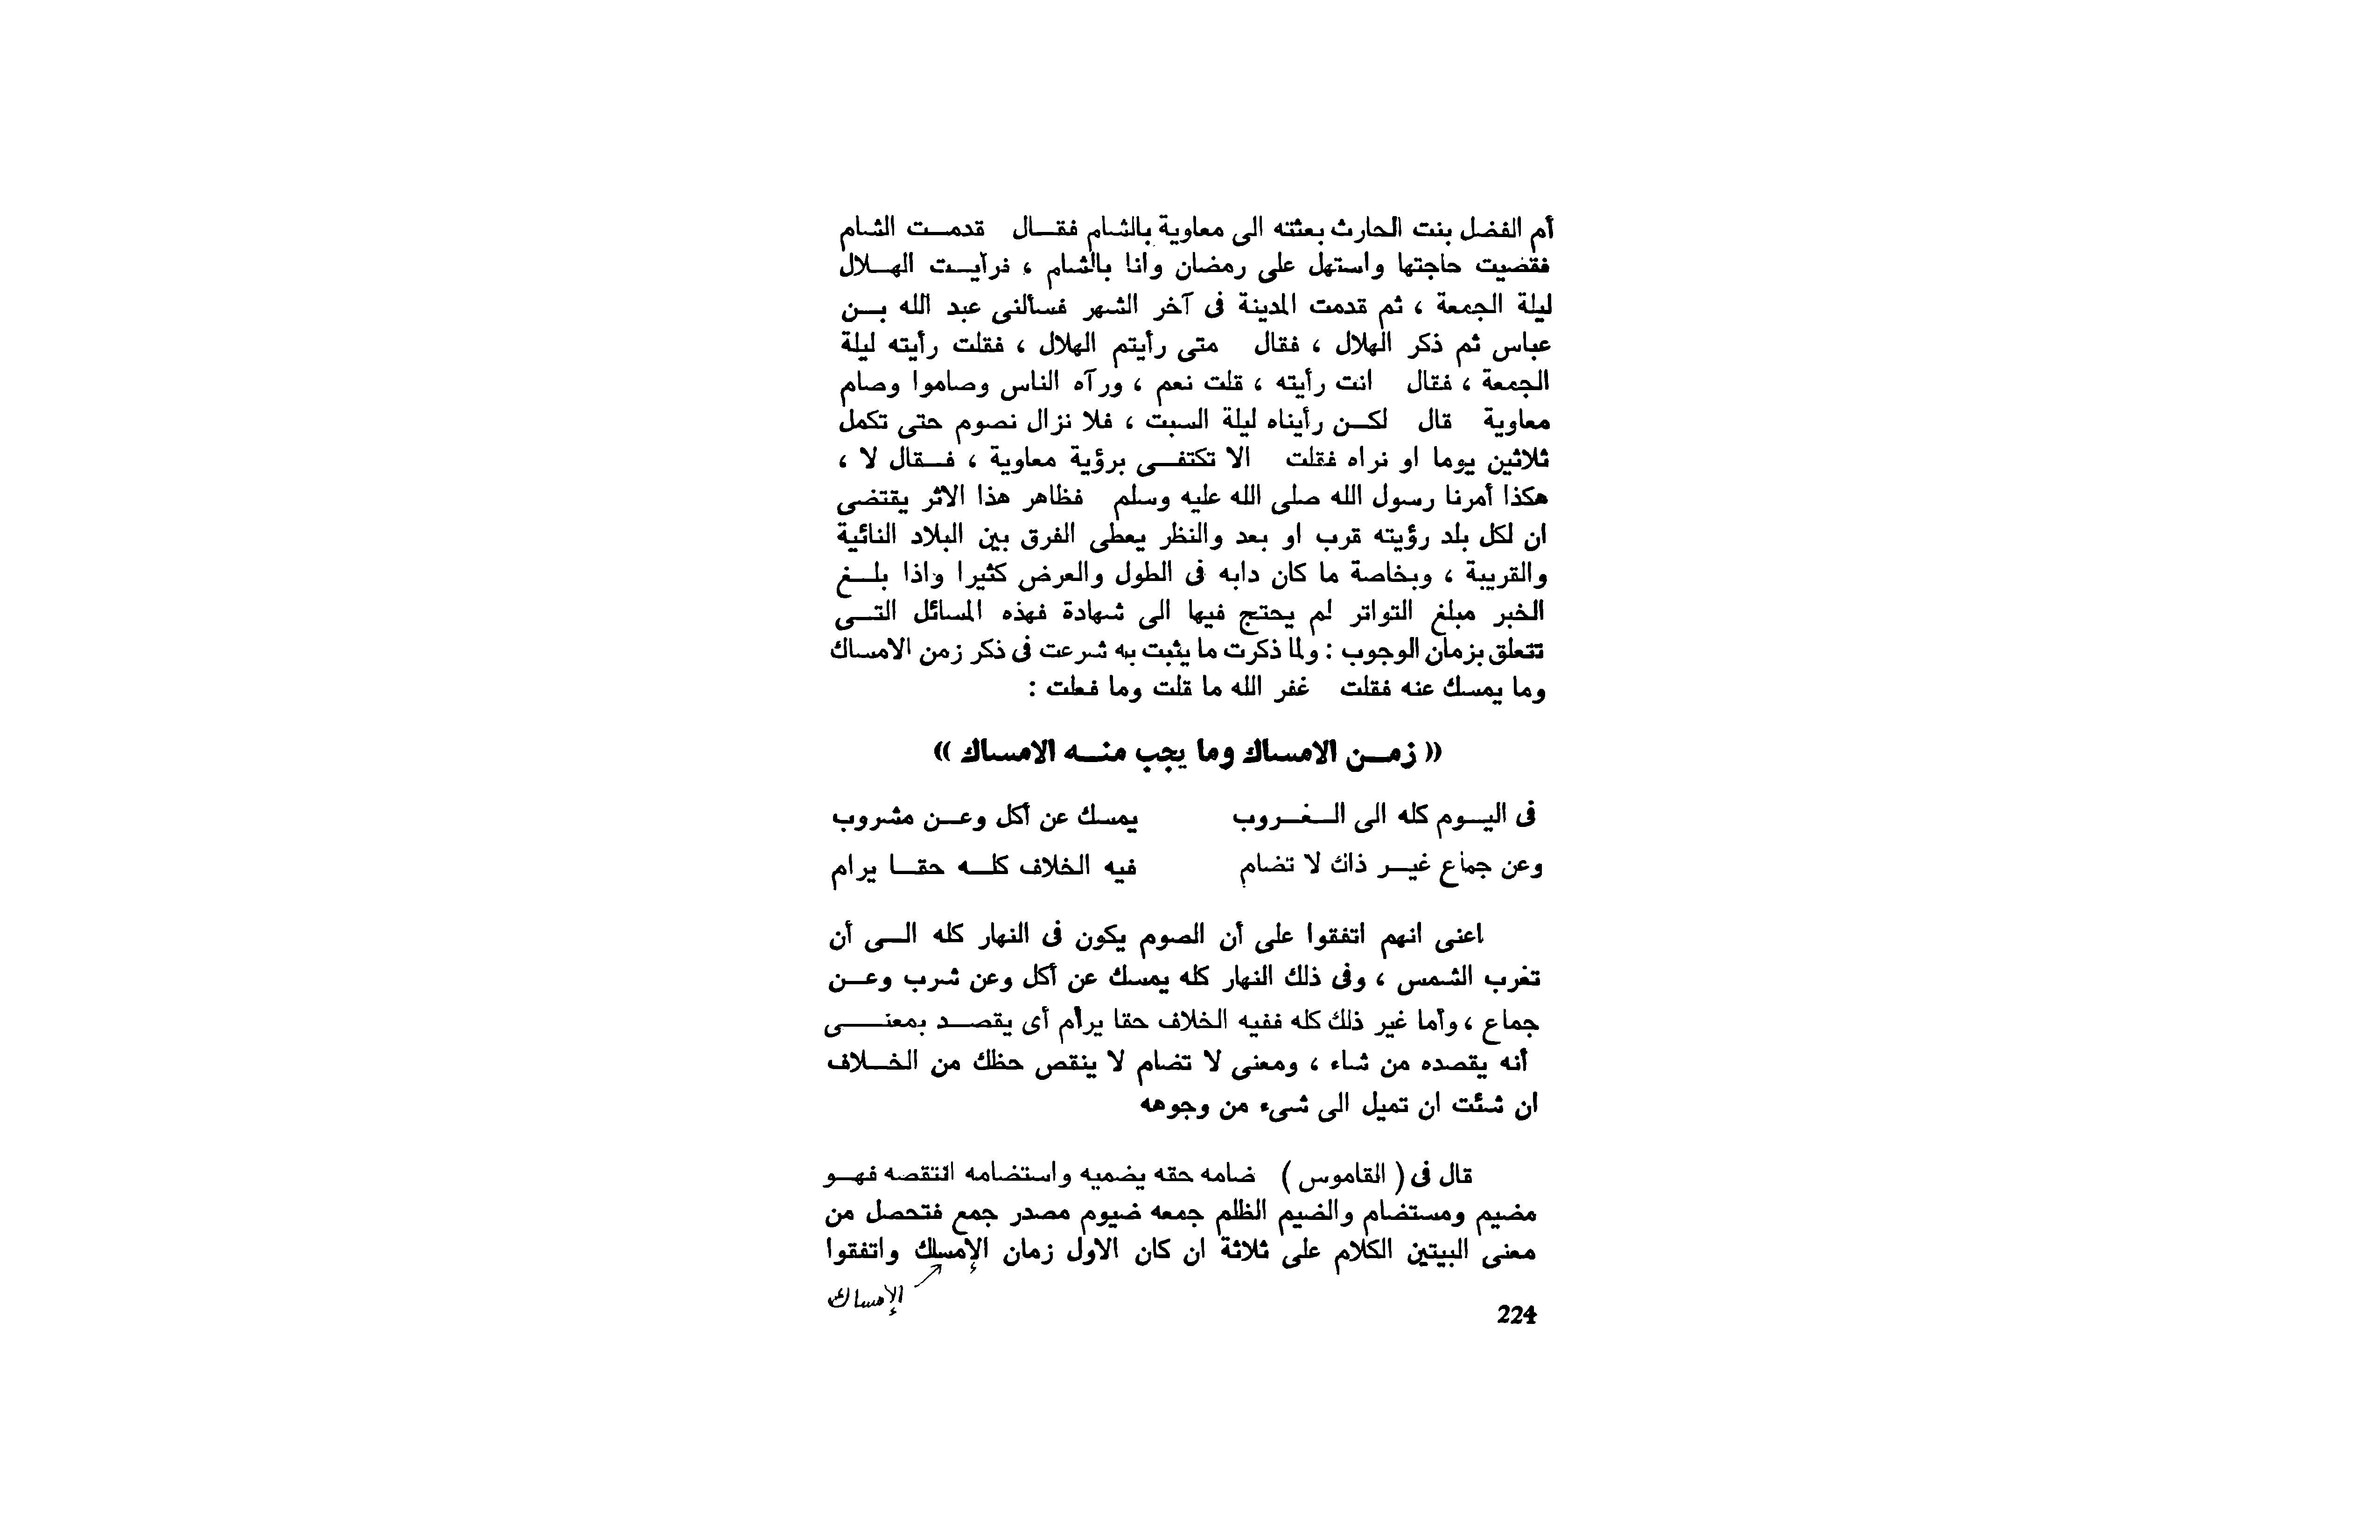 أم الفضل بنت الحارث بعثته الى معاوية بالشام فقـــال قدمـــت الشام
فقضيت حاجتها واستهل على رمضان وأنا بالشام ، فرأيـــت الهـــلال
ليلة الجمعة ، ثم قدمت المدينة فى آخر الشهر فسألنى عبد الله بـــن
عباس ثم ذكر الهلال ، فقال متى رأيتم الهلال ، فقلت رأيته ليلة
الجمعة ، فقال انت رأيته ، قلت نعم ، ورآه الناس وصاموا وصام
معاوية قال لكـــن رأيناه ليلة السبت ، فلا نزال نصوم حتى تكمل
ثلاثين يوما او نراه فقلت الا تكتفـــى برؤية معاوية ، فـــقال لا ،
هكذا أمرنا رسول الله صلى الله عليه وسلم فظاهر هذا الاثر يقتضى
ان لكل بلد رؤيته قرب او بعد والنظر يعطى الفرق بين البلاد النائية
والقريبة ، وبخاصة ما كان دابه فى الطول والعرض كثيرا واذا بلـــغ
الخبر مبلغ التواتر لم يحتج فيها الى شهادة فهذه المسائل التـــى
تتعلق بزمان الوجوب : ولما ذكرت ما يثبت به شرعت فى ذكر زمن الامساك
وما يمسك عنه فقلت غفر الله ما قلت وما فعلت :
« زمـــن الامساك وما يجب منـــه الامساك »
فى اليـــوم كله الى الـــغـــروب يمسك عن أكل وعـــن مشروب
وعن جماع غيـــر ذاك لا تضام فيه الخلاف كلـــه حقـــا يرام
اعنى انهم اتفقوا على أن الصوم يكون فى النهار كله الـــى أن
تغرب الشمس ، وفى ذلك النهار كله يمسك عن أكل وعن شرب وعـــن
جماع ، وأما غير ذلك كله ففيه الخلاف حقا يرام أى يقصـــد بمعنـــى
أنه يقصده من شاء ، ومعنى لا تضام لا ينقص حظك من الخـــلاف
ان شئت ان تميل الى شىء من وجوهه
قال فى ( القاموس ) ضامه حقه يضميه واستضامه انتقصه فهـــو
مضيم ومستضام والضيم الظلم جمعه ضيوم مصدر جمع فتحصل من
معنى البيتين الكلام على ثلاثة ان كان الاول زمان الإمسلك واتفقوا
الإمساك
224